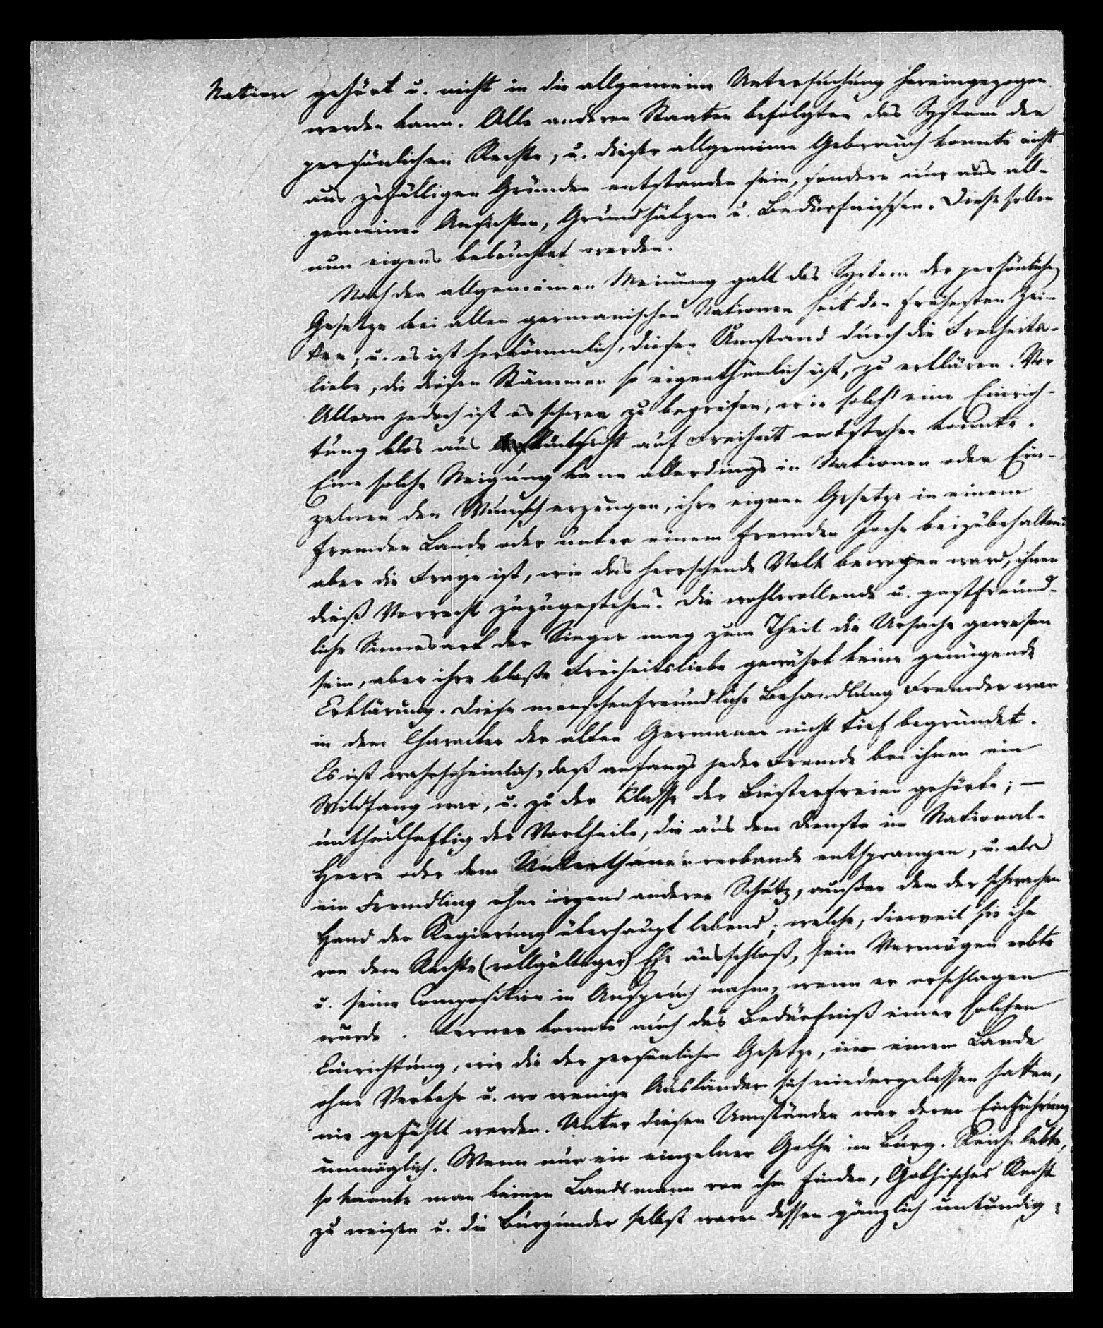 Nation gehört u. nicht in die allgemeine Untersuchung hereingezogen
werden kann. Alle anderen Staaten befolgten das System der
persönlichen Rechte, u. dieser allgemeine Gebrauch konnte nicht
aus zufälligen Gründen entstanden sein, sondern nur aus all-
gemeinen Ansichten, Grundsätzen u. Bedürfnissen. Diese sollen
nun eigens beleuchtet werden.
Nach der allgemeinen Meinung galt das System der persönlichen
Gesetze bei allen germanischen Nationen seit den frühesten Zei-
ten; u. es ist herkömmlich, diesen Umstand durch die Freiheits-
liebe, die diesen Stämmen so eigenthümlich ist, zu erklären. Vor
Allem jedoch ist es schwer zu begreifen, wie solch' eine Einrich-
tung blos aus auf Freiheit entstehen konnte.
Eine solche Neigung kann allerdings in Nationen oder Ein-
zelnen den Wunsch erzeugen, ihre eignen Gesetze in einem
fremden Lande oder unter einem fremden Joche beizubehalten;
aber die Frage ist, wie das herrschende Volk bewogen ward, ihnen
dieß Vorrecht zuzugestehen? Die wohlwollende u. gastfreund-
liche Sinnesart der Sieger mag zum Theil die Ursache gewesen
sein, aber ihre bloße Freiheitsliebe gewährt keine genügende
Erklärung. Diese menschenfreundliche Behandlung Fremder war
in dem Character der alten Germanen nicht tief begründet.
Es ist wahrscheinlich, daß anfangs jeder Fremde bei ihnen ein
Wildfang war, u. zu der Klasse der Biesterfreien gehörte; –
untheilhaftig der Vortheile, die aus dem Dienste im National-
Heere oder dem Unterthanenverbande entsprangen, u. als
ein Fremdling ohne irgend anderen Schutz, außer dem der schwachen
Hand der Regierung überhaupt lebend; welche, dieweil sie ihn
von dem Rechte (vollgültiger) Ehe ausschloß, sein Vermögen erbte
u. seine Composition in Anspruch nahm, wenn er erschlagen
wurde. Ferner konnte auch das Bedürfniß einer solchen
Einrichtung, wie die der persönlichen Gesetze, in einem Lande
ohne Verkehr u. wo wenige Ausländer sich niedergelassen hatten,
nie gefühlt werden. Unter diesen Umständen war deren Einführung
unmöglich. Wenn nur ein einzelner Gothe im Burg. Reiche lebte,
so konnte man keinen Landsmann von ihm finden, Gothisches Recht
zu weisen u. die Burgunder selbst waren dessen gänzlich unkundig;